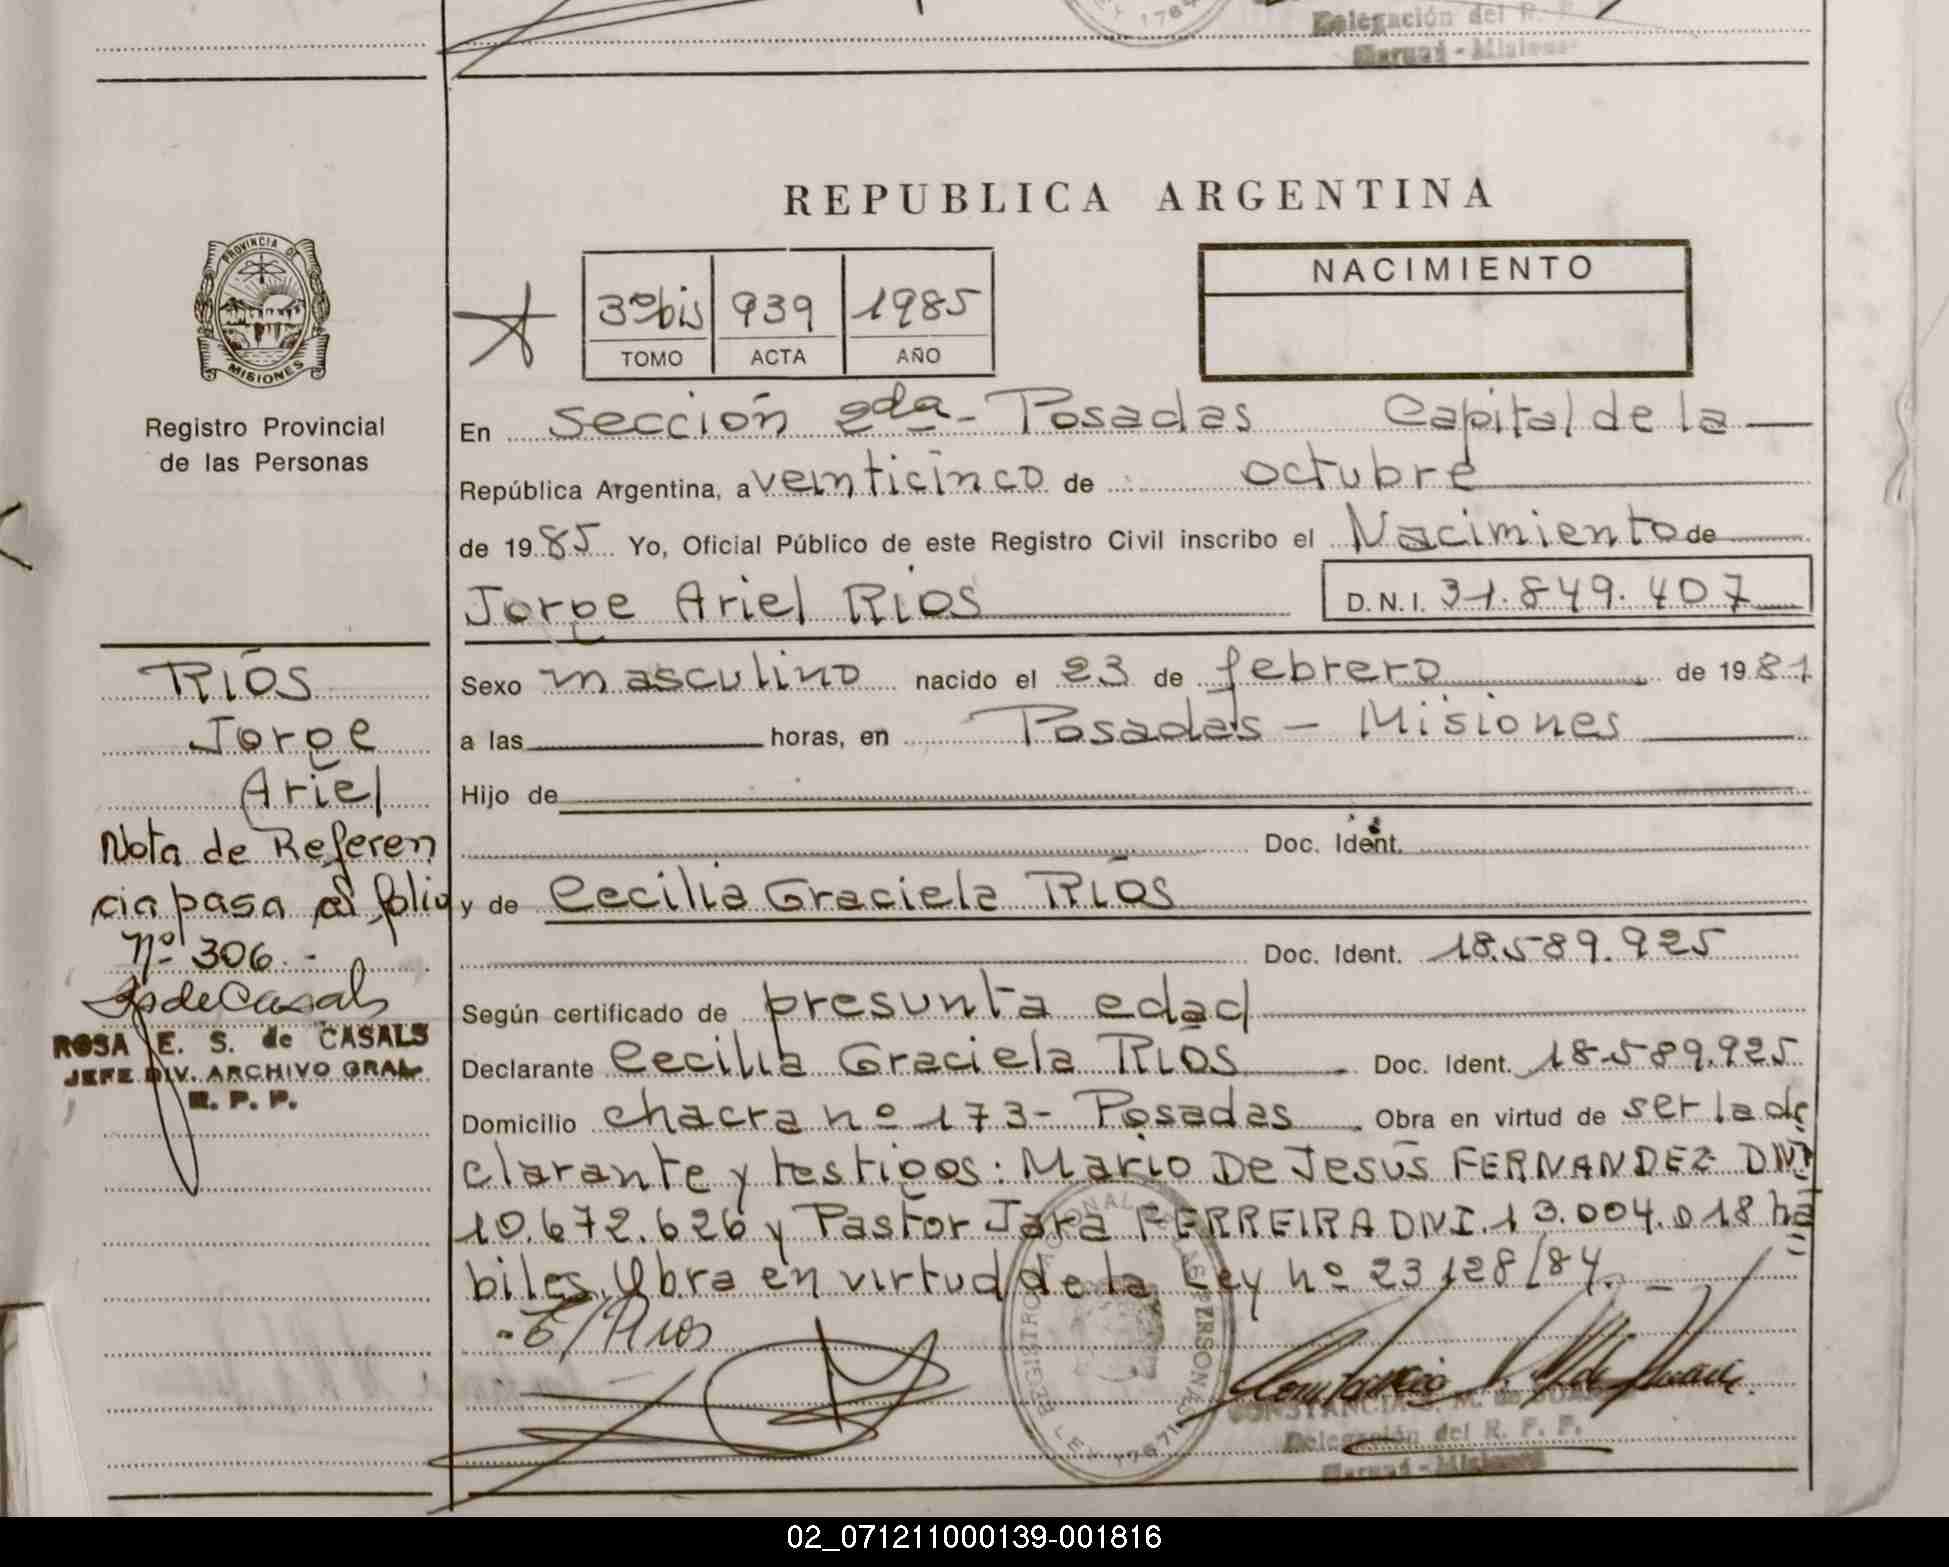 Delegación del R. P.
PROVINCIA DE
MISIONES
Registro Provincial
de las Personas
REPUBLICA ARGENTINA
3º bis 939 1985
TOMO ACTA AÑO
NACIMIENTO
En Sección 2da - Posadas Capital de la
República Argentina, a veinticinco de octubre
de 1985 Yo, Oficial Público de este Registro Civil inscribo el Nacimiento de
Jorge Ariel Ríos D.N.I. 31.849.407
Sexo masculino nacido el 23 de febrero de 1981
a las horas, en Posadas - Misiones
Hijo de
Doc. Ident.
y de Cecilia Graciela Ríos
Doc. Ident. 18.589.925
Según certificado de presunta edad
Declarante Cecilia Graciela Ríos Doc. Ident. 18.589.925
Domicilio chacra nº 173- Posadas Obra en virtud de ser la de
clarante y testigos: Mario De Jesús FERNANDEZ DNI
10.672.626 y Pastor Jara FERREIRA DNI. 13.004.018 há
biles. Obra en virtud de la Ley nº 23128/84. -
Ríos
Jorge
Ariel
Nota de Referen
cia pasa al folio
nº 306.-
ROSA E. S. de CASALS
JEFE DIV. ARCHIVO GRAL.
R. P. P.
REGISTRO NACIONAL DE LAS PERSONAS
LEY 17671
CONSTANCIA S. M. de
Delegación del R. P. P.
02_071211000139-001816